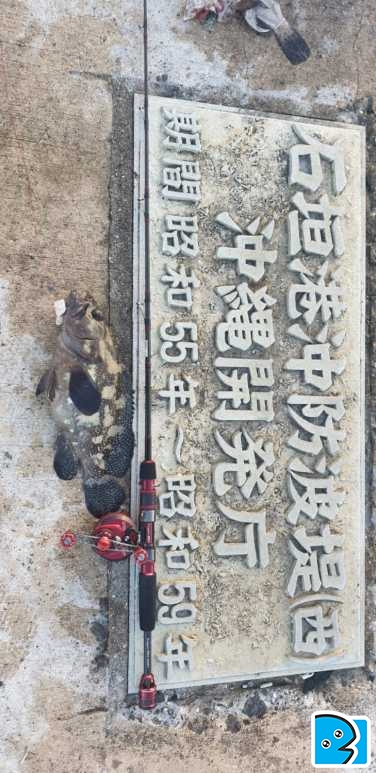 石垣港沖防波堤(西)
沖縄開発庁
期間昭和55年~昭和59年